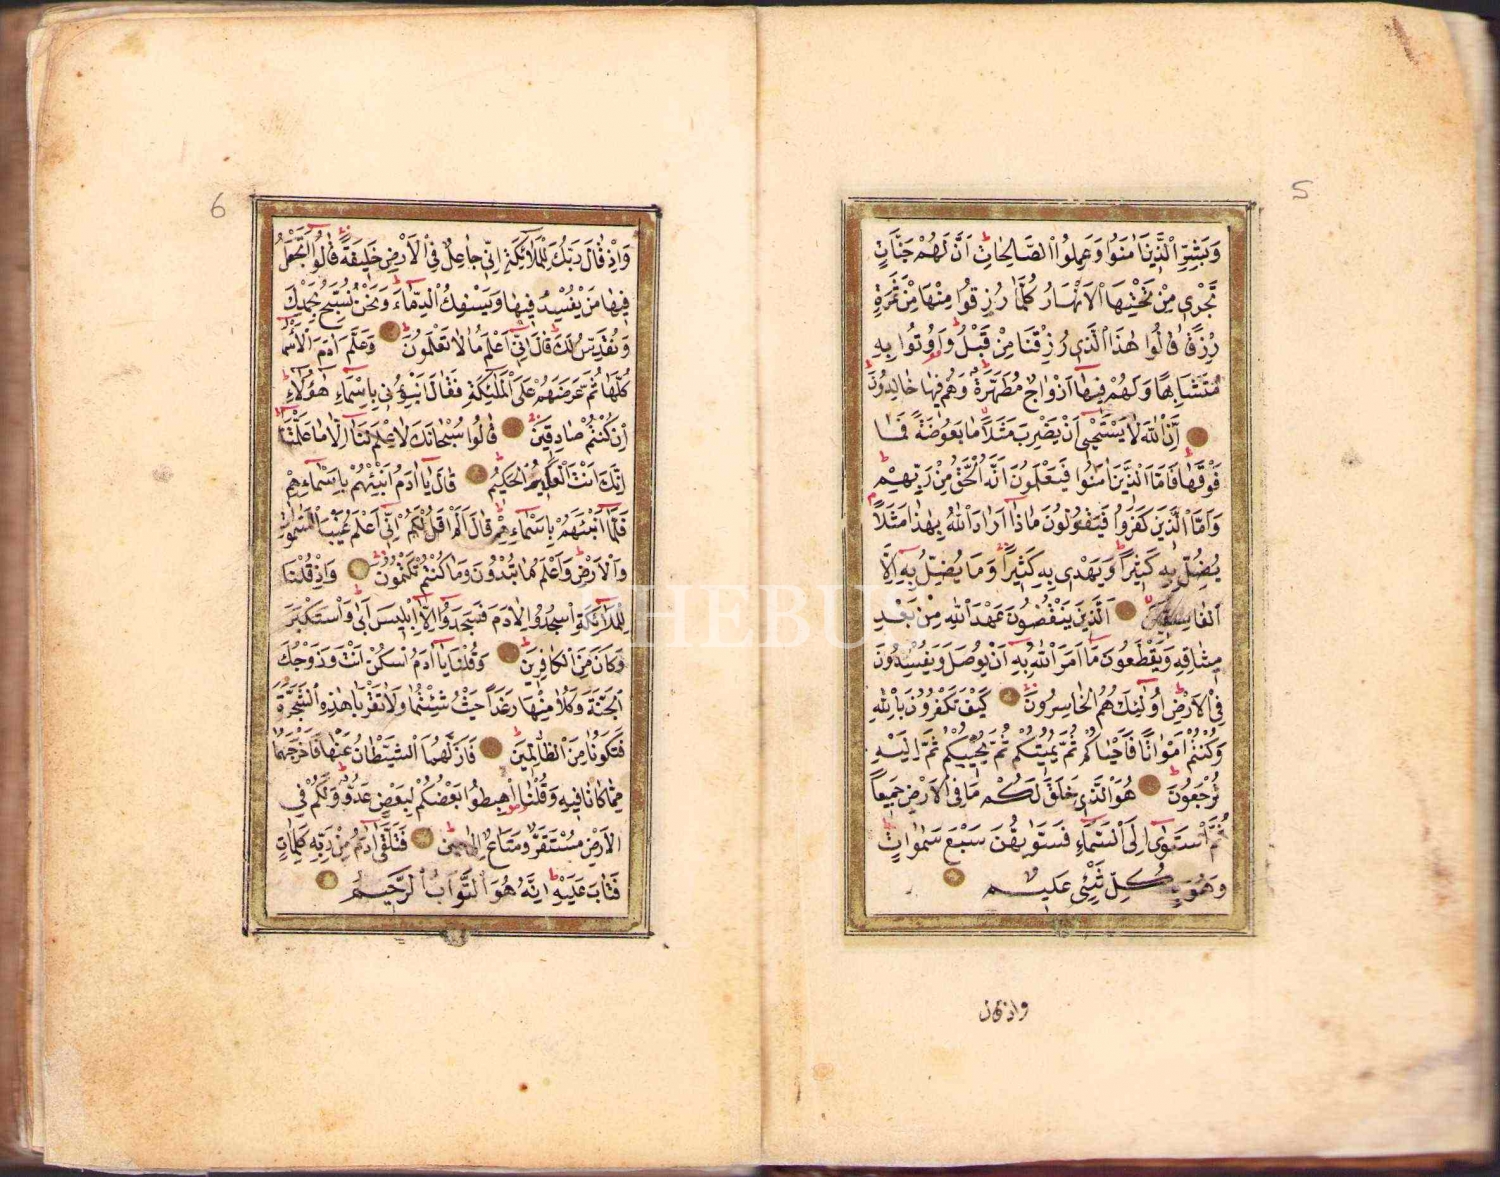 5
وَبَشِّرِ الَّذِينَ اٰمَنُوا وَعَمِلُوا الصَّالِحَاتِ اَنَّ لَهُمْ جَنَّاتٍ
تَجْرٖى مِنْ تَحْتِهَا الْاَنْهَارُ كُلَّمَا رُزِقُوا مِنْهَا مِنْ ثَمَرَةٍ
رِزْقًا قَالُوا هٰذَا الَّذٖى رُزِقْنَا مِنْ قَبْلُ وَاُوتُوا بِهٖ
مُتَشَابِهًا وَلَهُمْ فٖيهَا اَزْوَاجٌ مُطَهَّرَةٌ وَهُمْ فٖيهَا خَالِدُونَ
اِنَّ اللّٰهَ لَا يَسْتَحْيٖ اَنْ يَضْرِبَ مَثَلًا مَا بَعُوضَةً فَمَا
فَوْقَهَا فَاَمَّا الَّذٖينَ اٰمَنُوا فَيَعْلَمُونَ اَنَّهُ الْحَقُّ مِنْ رَبِّهِمْ
وَاَمَّا الَّذٖينَ كَفَرُوا فَيَقُولُونَ مَاذَا اَرَادَ اللّٰهُ بِهٰذَا مَثَلًا
يُضِلُّ بِهٖ كَثٖيرًا وَيَهْدٖى بِهٖ كَثٖيرًا وَمَا يُضِلُّ بِهٖ اِلَّا
الْفَاسِقٖينَ اَلَّذٖينَ يَنْقُضُونَ عَهْدَ اللّٰهِ مِنْ بَعْدِ
مٖيثَاقِهٖ وَيَقْطَعُونَ مَا اَمَرَ اللّٰهُ بِهٖ اَنْ يُوصَلَ وَيُفْسِدُونَ
فِى الْاَرْضِ اُولٰئِكَ هُمُ الْخَاسِرُونَ كَيْفَ تَكْفُرُونَ بِاللّٰهِ
وَكُنْتُمْ اَمْوَاتًا فَاَحْيَاكُمْ ثُمَّ يُمٖيتُكُمْ ثُمَّ يُحْيٖيكُمْ ثُمَّ اِلَيْهِ
تُرْجَعُونَ هُوَ الَّذٖى خَلَقَ لَكُمْ مَا فِى الْاَرْضِ جَمٖيعًا
ثُمَّ اسْتَوٰى اِلَى السَّمَاءِ فَسَوّٰيهُنَّ سَبْعَ سَمٰوَاتٍ
وَهُوَ بِكُلِّ شَيْءٍ عَلٖيمٌ
واذ قال
6
وَاِذْ قَالَ رَبُّكَ لِلْمَلٰئِكَةِ اِنّٖى جَاعِلٌ فِى الْاَرْضِ خَلٖيفَةً قَالُوا اَتَجْعَلُ
فٖيهَا مَنْ يُفْسِدُ فٖيهَا وَيَسْفِكُ الدِّمَاءَ وَنَحْنُ نُسَبِّحُ بِحَمْدِكَ
وَنُقَدِّسُ لَكَ قَالَ اِنّٖى اَعْلَمُ مَا لَا تَعْلَمُونَ وَعَلَّمَ اٰدَمَ الْاَسْمَاءَ
كُلَّهَا ثُمَّ عَرَضَهُمْ عَلَى الْمَلٰئِكَةِ فَقَالَ اَنْبِؤُنٖى بِاَسْمَاءِ هٰؤُلَاءِ
اِنْ كُنْتُمْ صَادِقٖينَ قَالُوا سُبْحَانَكَ لَا عِلْمَ لَنَا اِلَّا مَا عَلَّمْتَنَا
اِنَّكَ اَنْتَ الْعَلٖيمُ الْحَكٖيمُ قَالَ يَا اٰدَمُ اَنْبِئْهُمْ بِاَسْمَاءِهِمْ
فَلَمَّا اَنْبَئَهُمْ بِاَسْمَاءِهِمْ قَالَ اَلَمْ اَقُلْ لَكُمْ اِنّٖى اَعْلَمُ غَيْبَ السَّمٰوَاتِ
وَالْاَرْضِ وَاَعْلَمُ مَا تُبْدُونَ وَمَا كُنْتُمْ تَكْتُمُونَ وَاِذْ قُلْنَا
لِلْمَلٰئِكَةِ اسْجُدُوا لِاٰدَمَ فَسَجَدُوا اِلَّا اِبْلٖيسَ اَبٰى وَاسْتَكْبَرَ
وَكَانَ مِنَ الْكَافِرٖينَ وَقُلْنَا يَا اٰدَمُ اسْكُنْ اَنْتَ وَزَوْجُكَ
الْجَنَّةَ وَكُلَا مِنْهَا رَغَدًا حَيْثُ شِئْتُمَا وَلَا تَقْرَبَا هٰذِهِ الشَّجَرَةَ
فَتَكُونَا مِنَ الظَّالِمٖينَ فَاَزَلَّهُمَا الشَّيْطَانُ عَنْهَا فَاَخْرَجَهُمَا
مِمَّا كَانَا فٖيهِ وَقُلْنَا اهْبِطُوا بَعْضُكُمْ لِبَعْضٍ عَدُوٌّ وَلَكُمْ فِى
الْاَرْضِ مُسْتَقَرٌّ وَمَتَاعٌ اِلٰى حٖينٍ فَتَلَقّٰى اٰدَمُ مِنْ رَبِّهٖ كَلِمَاتٍ
فَتَابَ عَلَيْهِ اِنَّهُ هُوَ التَّوَّابُ الرَّحٖيمُ
PHEBUS